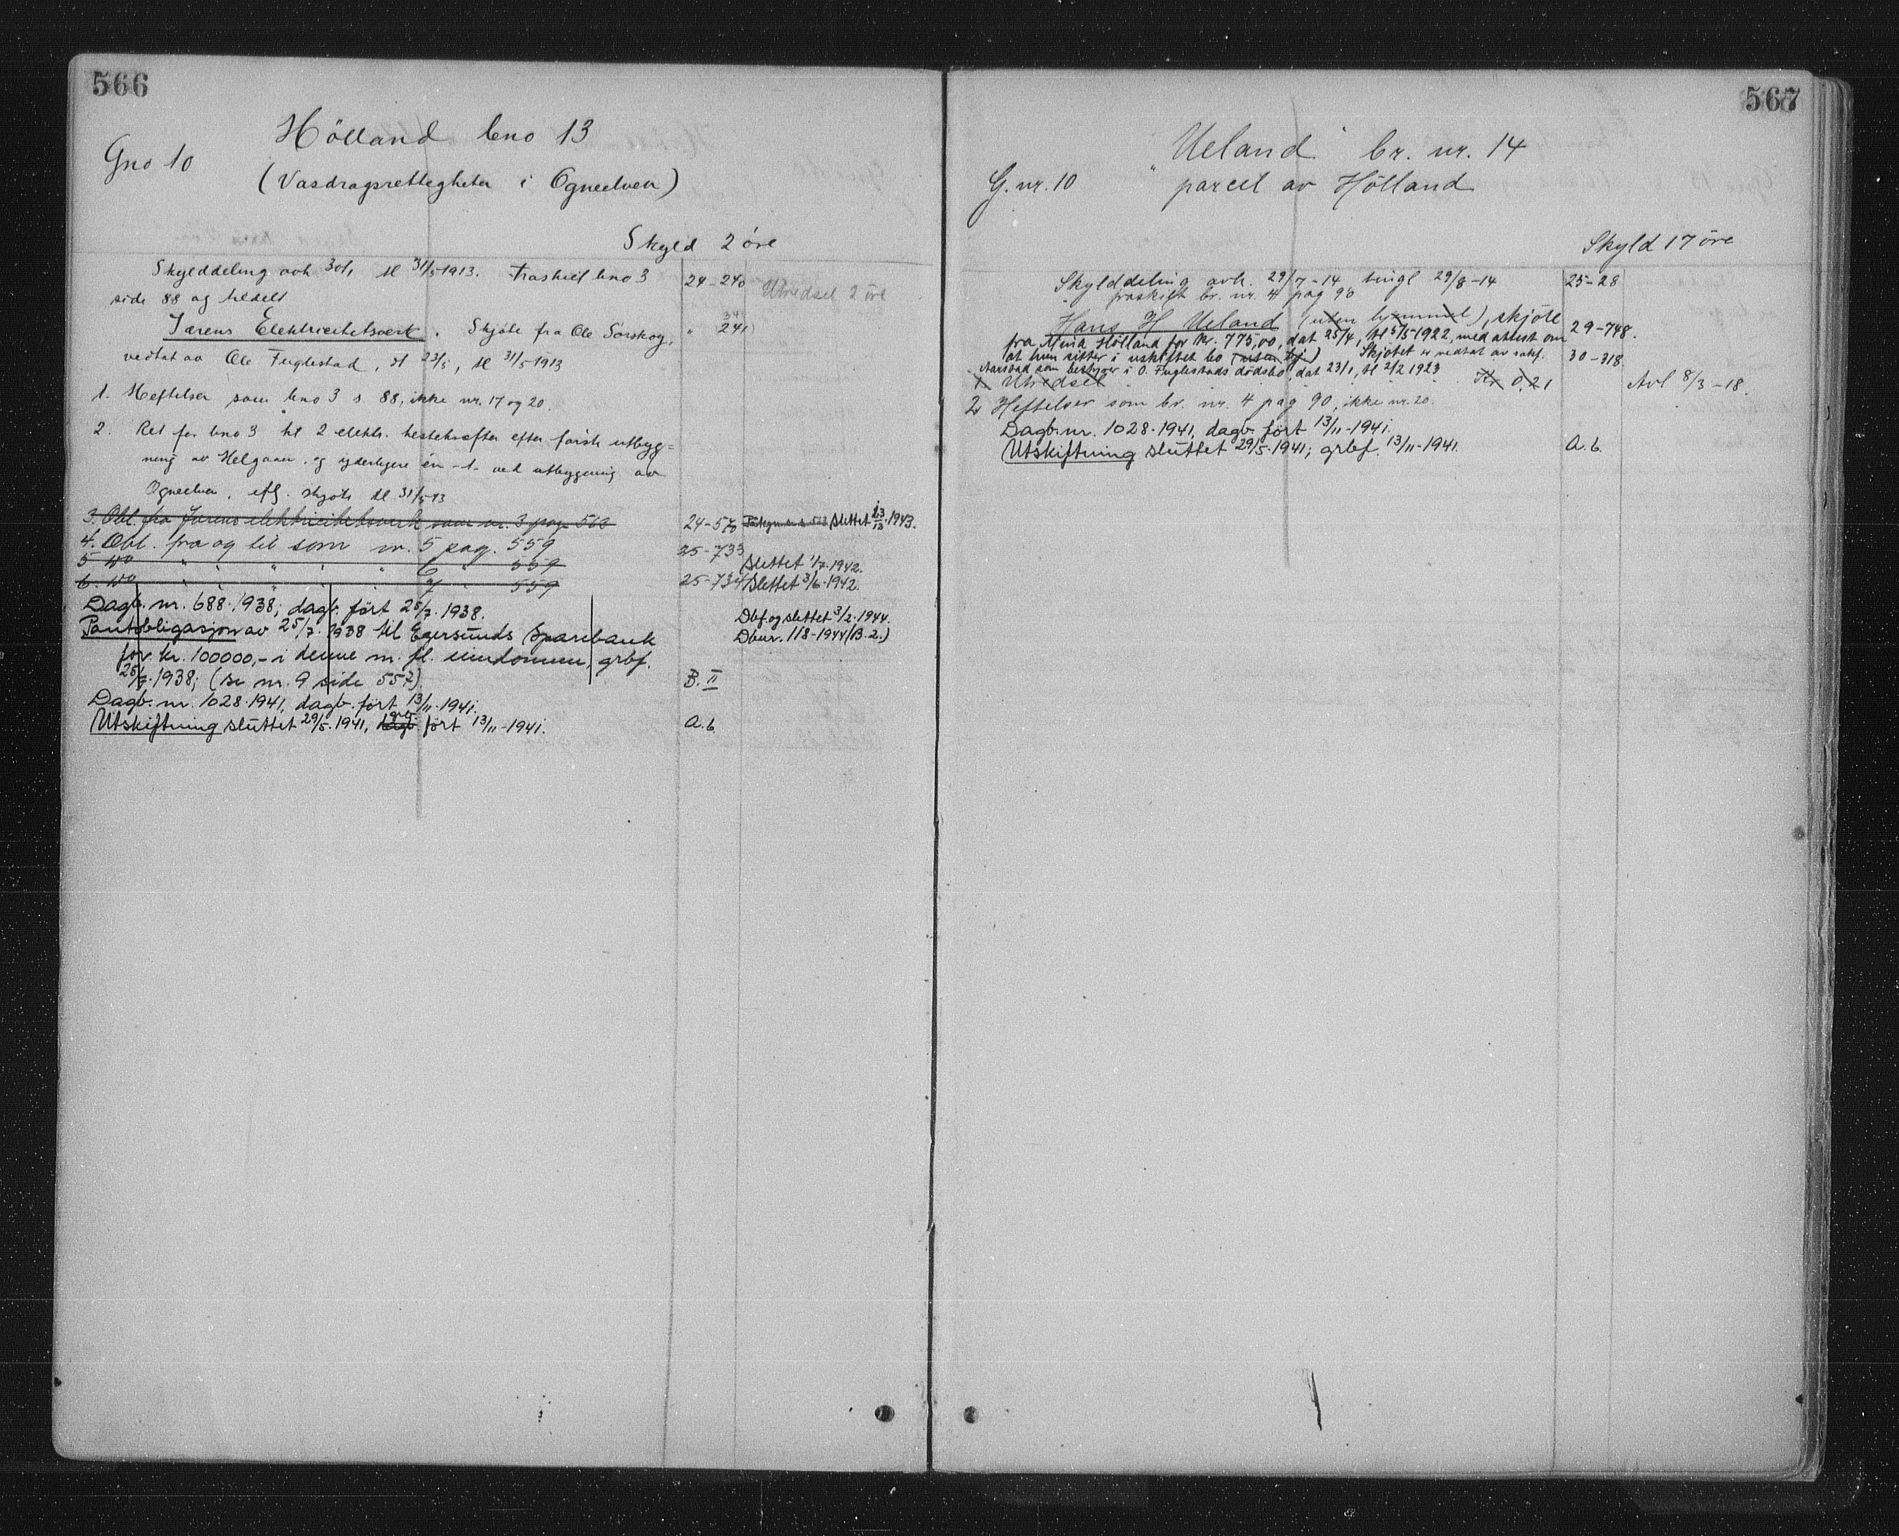 566
Hölland bno 13
Gno 10
(Vasdragsrettigheter i Ogneelven)
Skyld 2 öre
Skylddeling avh 30/1 tl 31/5-1913. Fraskilt bno 3
24-240
Utredsel 2 öre
side 88 og tildelt
Jærens Elektricitetsverk. Skjöte fra Ole Sörskog,
" 241
vedtat av Ole Fuglestad, dt 23/5, tl 31/5 1913
1. Heftelser som bno 3 s. 88, ikke nr. 17 og 20.
2. Ret for bno 3 til 2 elektr. hestekræfter efter förste utbyg=
ning av Helgaaen, og yderligere én -"- ved utbygning av
Ogneelven, efl. skjöte tl 31/5 13
3. Obl. fra Jærens elektricitetsverk som nr. 3 pag. 563
24-570
slettet 13/12.1943.
4. Obl. fra og til som nr. 5 pag. 559
25-733
5 do " " " " " 6 " 559
slettet 1/7.1942.
6. do " " " " " 7 " 559
25-734
slettet 3/6.1942.
Dagb. nr. 688.1938; dagb. fört 25/7.1938.
Dbf. og slettet 3/2.1944.
Pantobligasjon av 25/7.1938 til Egersunds Sparebank
Dbnr. 118-1944 (B.2.)
for kr. 100000,- i denne m. fl. eiendommer, grbf.
25/7.1938; (se nr. 9 side 557)
B. II
Dagb. nr. 1028.1941, dagb. fört 13/11.1941.
Utskiftning sluttet 29/5.1941, grb fört 13/11-1941.
A. 6
567
"Ueland" br. nr. 14
G. nr. 10
parcel av Hölland
Skyld 17 öre
Skylddeling avh. 29/7-14 tingl 29/8-14
25-28
fraskilt br. nr. 4 pag 90
Hans H Ueland (uten hjemmel), skjöte
29-748.
fra Hölland for kr. 775,00, dat 25/4, tl 5/5 1922, med attest om
at hun sitter i uskiftet bo (uten hj.) Skjötet er vedtat av sakf.
30-318
Aarstad som bestyrer i O. Fuglestads dödsbo, dat 23/1, tl 2/2 1923
1 Utredsel " " " " Kr. 0,21
Avl 8/3-18
2 Heftelser som br. nr. 4 pag 90, ikke nr. 20.
Dagb. nr. 1028.1941, dagb. fört 13/11-1941.
Utskiftning sluttet 29/5.1941; grbf. 13/11-1941.
A. 6.